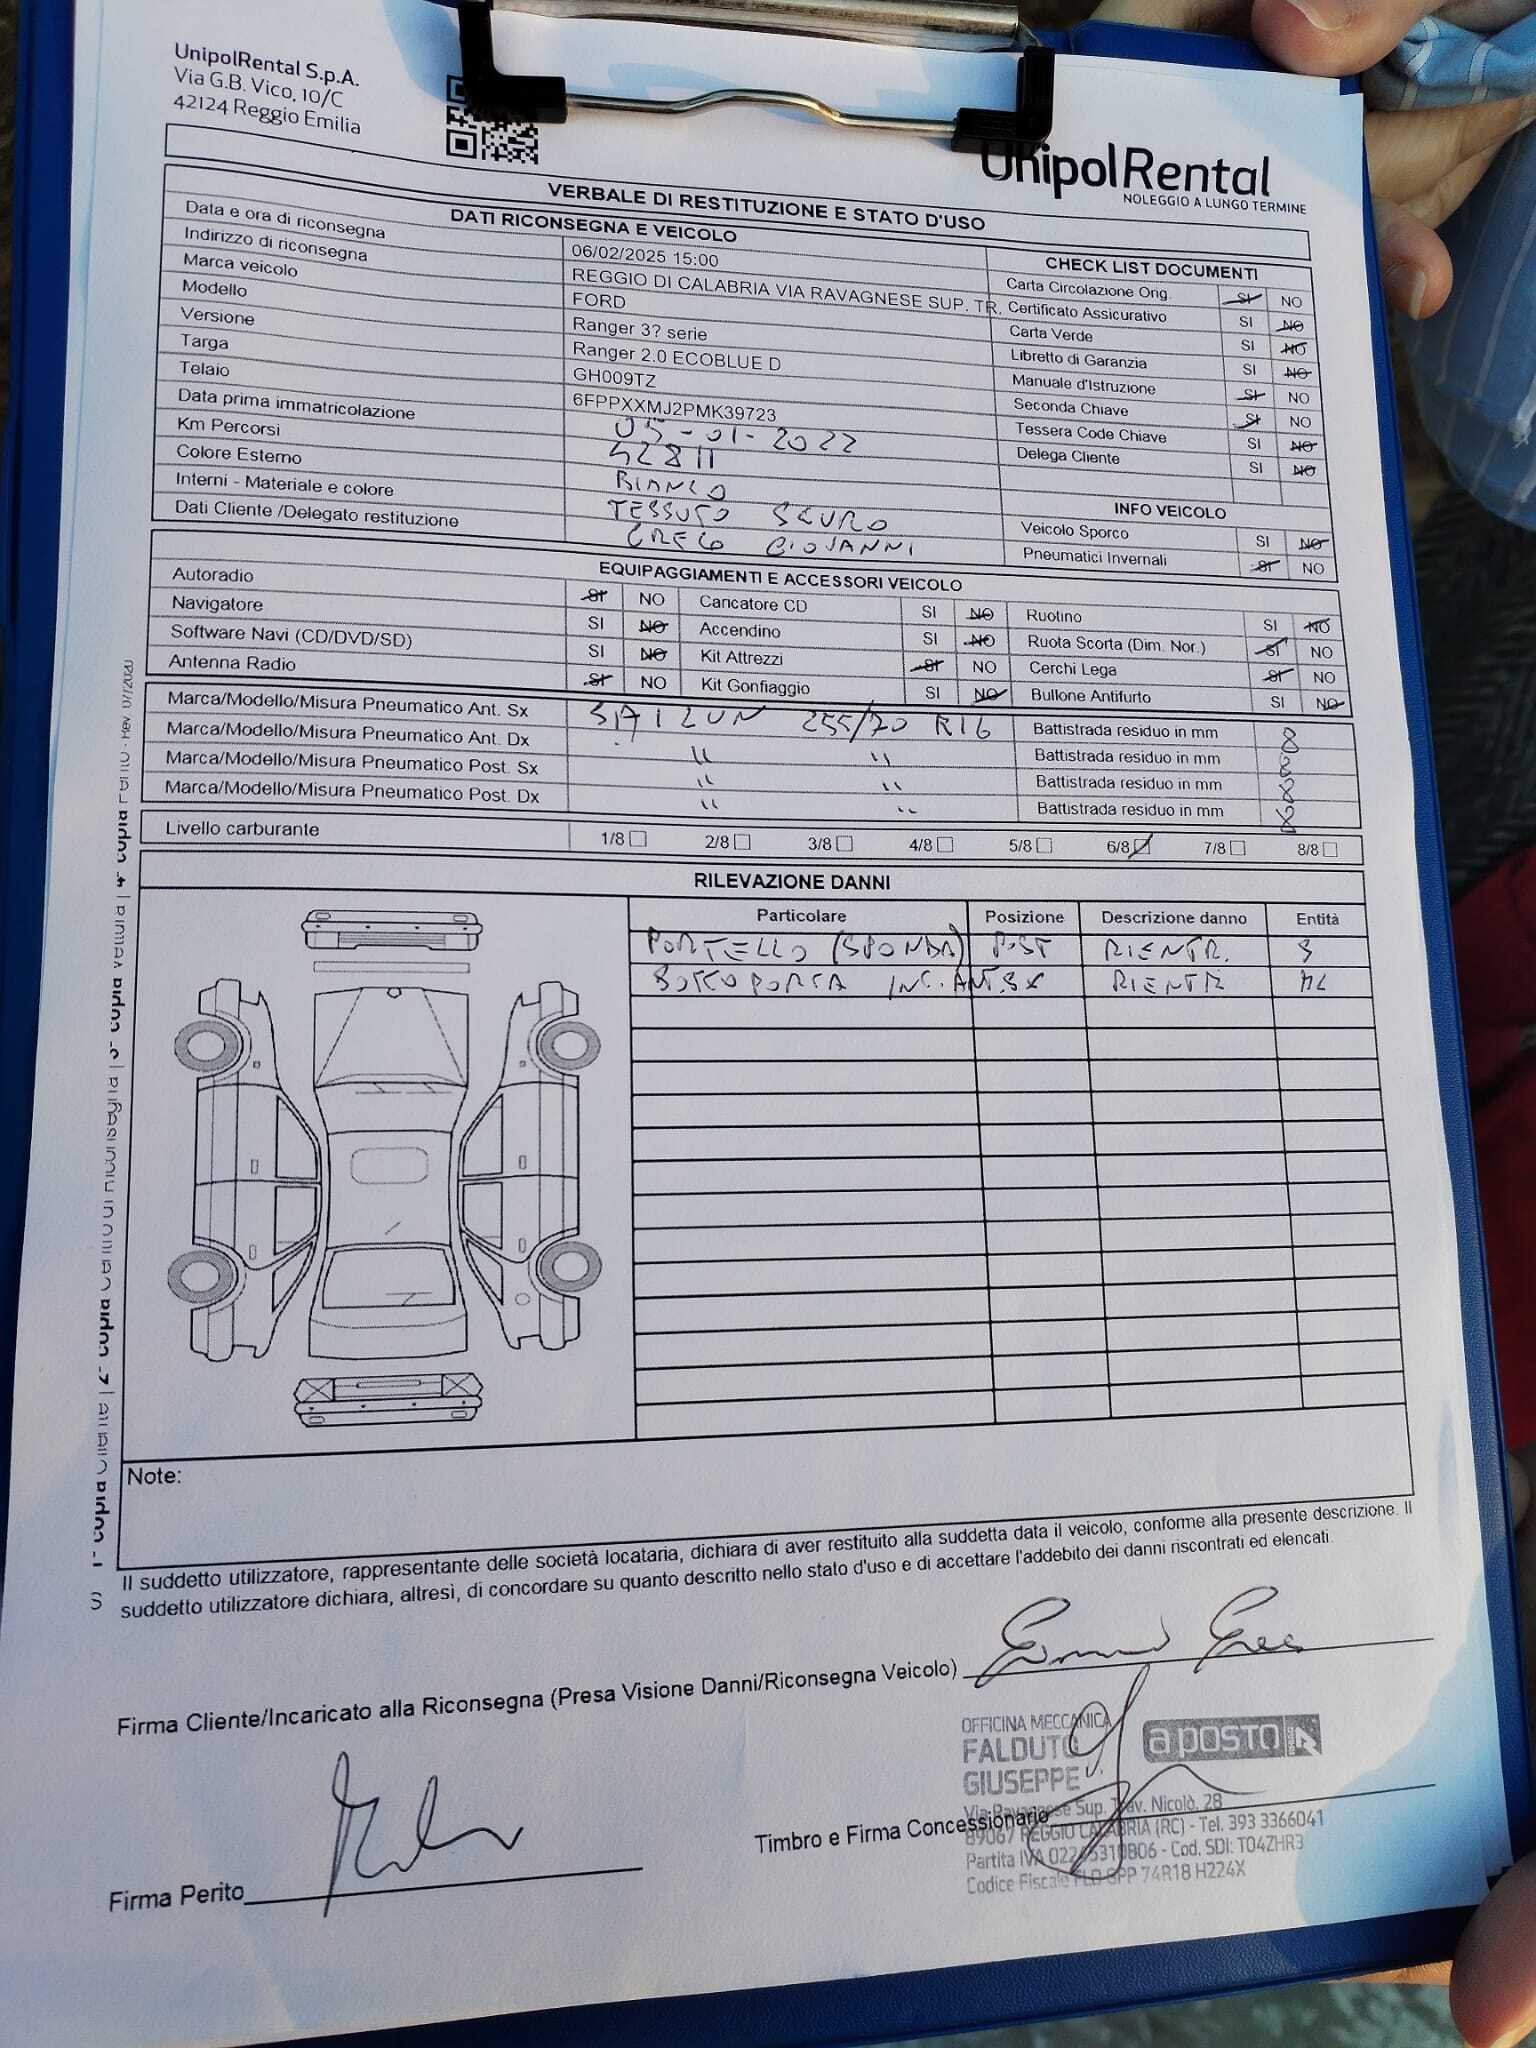 UnipolRental S.p.A.
Via G.B. Vico, 10/C
42124 Reggio Emilia
UnipolRental
NOLEGGIO A LUNGO TERMINE
VERBALE DI RESTITUZIONE E STATO D'USO
DATI RICONSEGNA E VEICOLO
Data e ora di riconsegna 06/02/2025 15:00
Indirizzo di riconsegna REGGIO DI CALABRIA VIA RAVAGNESE SUP. TR.
Marca veicolo FORD
Modello Ranger 3? serie
Versione Ranger 2.0 ECOBLUE D
Targa GH009TZ
Telaio 6FPPXXMJ2PMK39723
Data prima immatricolazione 05-01-2022
Km Percorsi 52811
Colore Esterno BIANCO
Interni - Materiale e colore TESSUTO SCURO
Dati Cliente /Delegato restituzione GRECO GIOVANNI
CHECK LIST DOCUMENTI
Carta Circolazione Orig. SI NO
Certificato Assicurativo SI NO
Carta Verde SI NO
Libretto di Garanzia SI NO
Manuale d'Istruzione SI NO
Seconda Chiave SI NO
Tessera Code Chiave SI NO
Delega Cliente SI NO
INFO VEICOLO
Veicolo Sporco SI NO
Pneumatici Invernali SI NO
EQUIPAGGIAMENTI E ACCESSORI VEICOLO
Autoradio SI NO Caricatore CD SI NO Ruotino SI NO
Navigatore SI NO Accendino SI NO Ruota Scorta (Dim. Nor.) SI NO
Software Navi (CD/DVD/SD) SI NO Kit Attrezzi SI NO Cerchi Lega SI NO
Antenna Radio SI NO Kit Gonfiaggio SI NO Bullone Antifurto SI NO
Marca/Modello/Misura Pneumatico Ant. Sx SAILUN 255/70 R16 Battistrada residuo in mm 8
Marca/Modello/Misura Pneumatico Ant. Dx " " Battistrada residuo in mm 8
Marca/Modello/Misura Pneumatico Post. Sx " " Battistrada residuo in mm 8
Marca/Modello/Misura Pneumatico Post. Dx " " Battistrada residuo in mm 8
Livello carburante 1/8 2/8 3/8 4/8 5/8 6/8 7/8 8/8
RILEVAZIONE DANNI
Particolare Posizione Descrizione danno Entità
PORTELLO (SPONDA) POST RIENTR. 3
SOTTOPORTA INC. ANT.SX RIENTR
Note:
Il suddetto utilizzatore, rappresentante delle società locataria, dichiara di aver restituito alla suddetta data il veicolo, conforme alla presente descrizione. Il
suddetto utilizzatore dichiara, altresì, di concordare su quanto descritto nello stato d'uso e di accettare l'addebito dei danni riscontrati ed elencati.
Firma Cliente/Incaricato alla Riconsegna (Presa Visione Danni/Riconsegna Veicolo)
OFFICINA MECCANICA
FALDUTO
GIUSEPPE
a posto
Via Ravagnese Sup. Trav. Nicolò, 28
89067 REGGIO CALABRIA (RC) - Tel. 393 3366041
Partita IVA - Cod. SDI: T04ZHR3
Codice Fiscale FLD GPP 74R18 H224X
Timbro e Firma Concessionario
Firma Perito